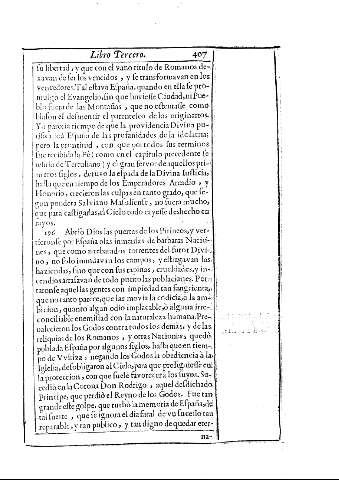 Libro Tercero. 407
su libertad, y que con el vano titulo de Romanos de-
xavan de ser los vencidos, y se transformavan en los
vencedores. Tal estava España, quando en ella se pro-
mulgò el Evangelio, sin que huviesse Ciudad, ni Pue-
blo fuera de las Montañas, que no
blason el desmentir el parentesco de los originarios.
Ya parecia tiempo de que la providencia Divina pu-
rificàra España de las profanidades de la idolatria;
pero la gratitud, con que por todos sus terminos
fue recibida la Fè (como en el capitulo precedente se
refiriò de Tertuliano) y el gran fervor de aquellos pri-
meros siglos, detuvo la espada de la Divina Iusticia,
hasta que en tiempo de los Emperadores Arcadio, y
Honorio, crecieron las culpas en tanto grado, que se-
gun pondera Salviano Masiliense, no fuera mucho,
que para castigarlas, el Cielo todo cayesse deshecho en
rayos.
196 Abriò Dios las puertas de los Pirineos, y ver-
tieronse por España olas inmensas de barbaras Nacio-
nes, que como arrebatados torrentes del furor Divi-
no, no solo inundavan los campos, y estragavan las
haziendas, sino que con sus ruinas, crueldades, y in-
cendios arrasavan de todo punto las poblaciones. Por-
taronse aquellas gentes con impiedad tan sangrienta,
que no tanto parece, que las movia la codicia, o la am-
bicion, quanto algun odio implacable, o alguna irre-
conciliable enemistad con la naturaleza humana. Pre-
valecieron los Godos contra todos los demàs, y de las
reliquias de los Romanos, y otras Naciones, quedò
poblada España por algunos siglos, hasta que en tiem-
po de Vvitiza, negando los Godos la obediencia à la
Iglesia, desobligaron al Cielo, para que prosiguiesse en
la proteccion, con que suele favorecer à los suyos. Su-
cediò en la Corona Don Rodrigo, aquel desdichado
Principe, que perdiò el Reyno de los Godos. Fue tan
grande este golpe, que turbò la memoria de España, de
tal suerte, que se ignora el dia fixo de vn sucesso tan
reparable, y tan publico, y tan digno de quedar eter-
na-